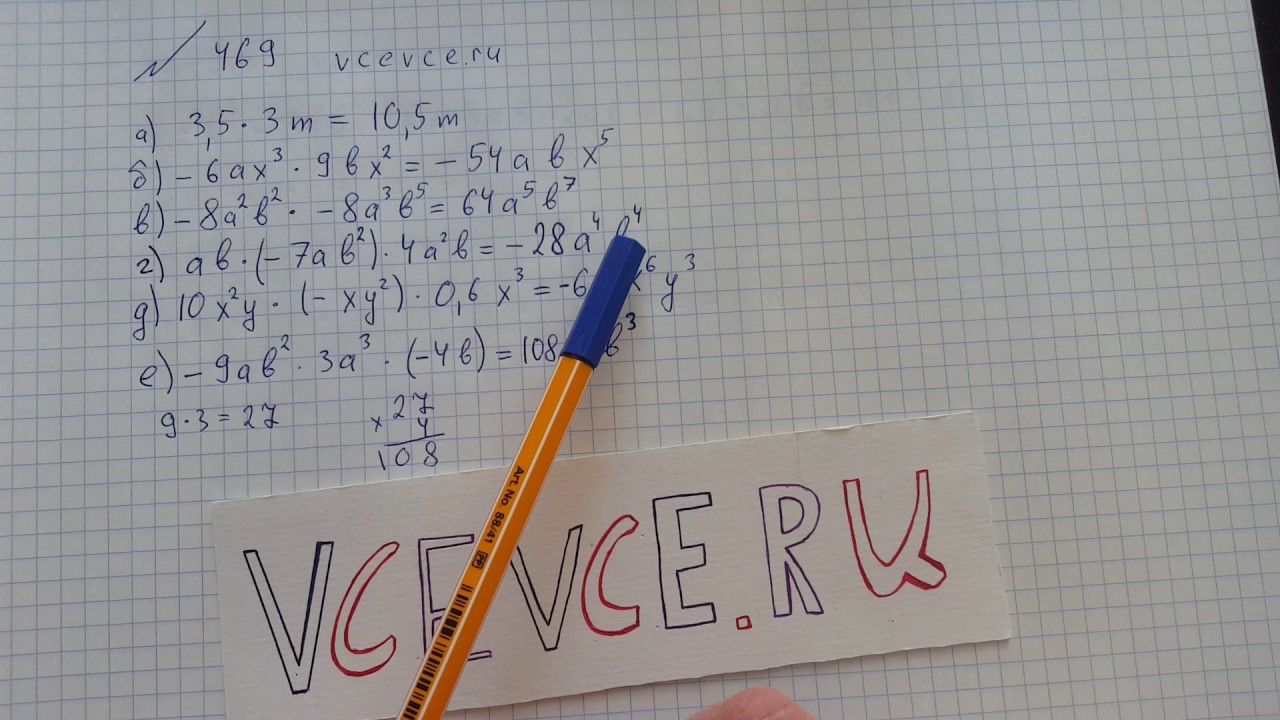 № 469 vcevce.ru
а) 3,5 · 3m = 10,5m
б) - 6ax³ · 9bx² = - 54abx⁵
в) - 8a²b² · - 8a³b⁵ = 64a⁵b⁷
г) ab · (- 7ab²) · 4a²b = - 28a⁴b⁴
д) 10x²y · (- xy²) · 0,6x³ = -6 x⁶y³
е) - 9ab² · 3a³ · (-4b) = 108 b³
9·3 = 27
27
× 4
108
Art. No 88/41 PP
VCEVCE.RU